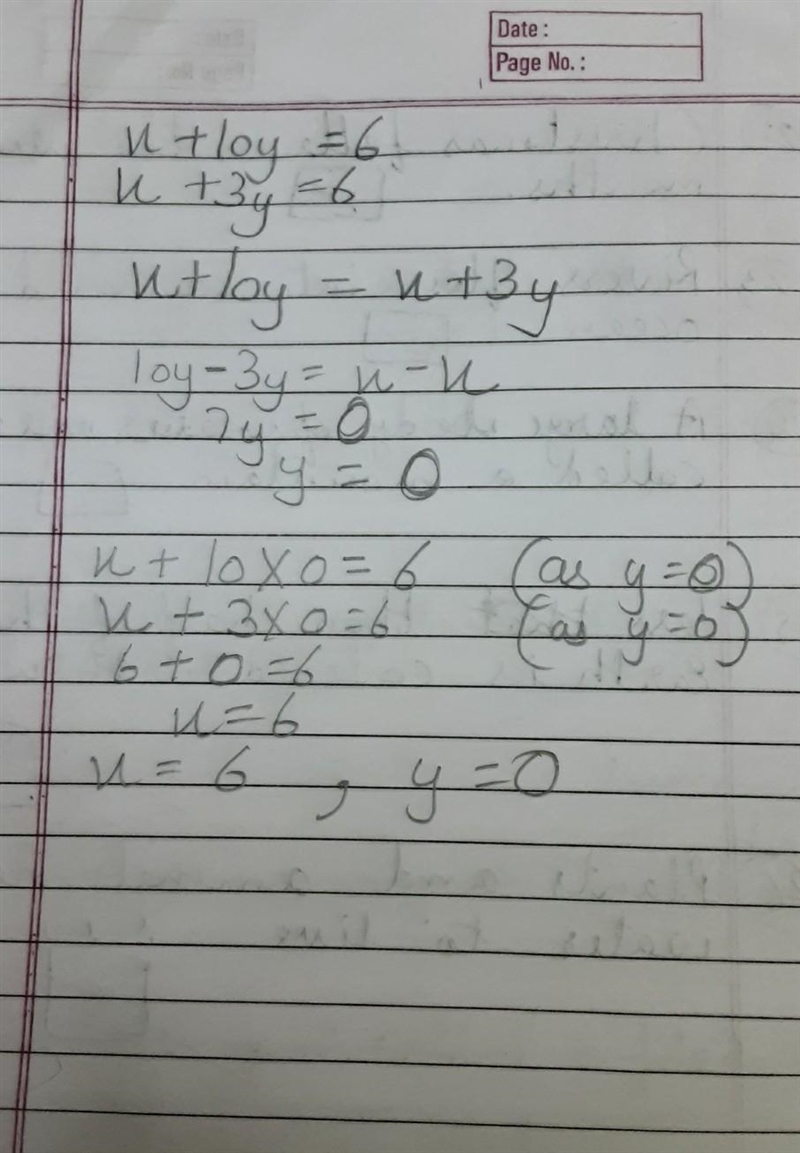 Date :
Page No. :
x + 10y = 6
x + 3y = 6
x + 10y = x + 3y
10y - 3y = x - x
7y = 0
y = 0
x + 10 × 0 = 6 (as y = 0)
x + 3 × 0 = 6 (as y = 0)
6 + 0 = 6
x = 6
x = 6 , y = 0